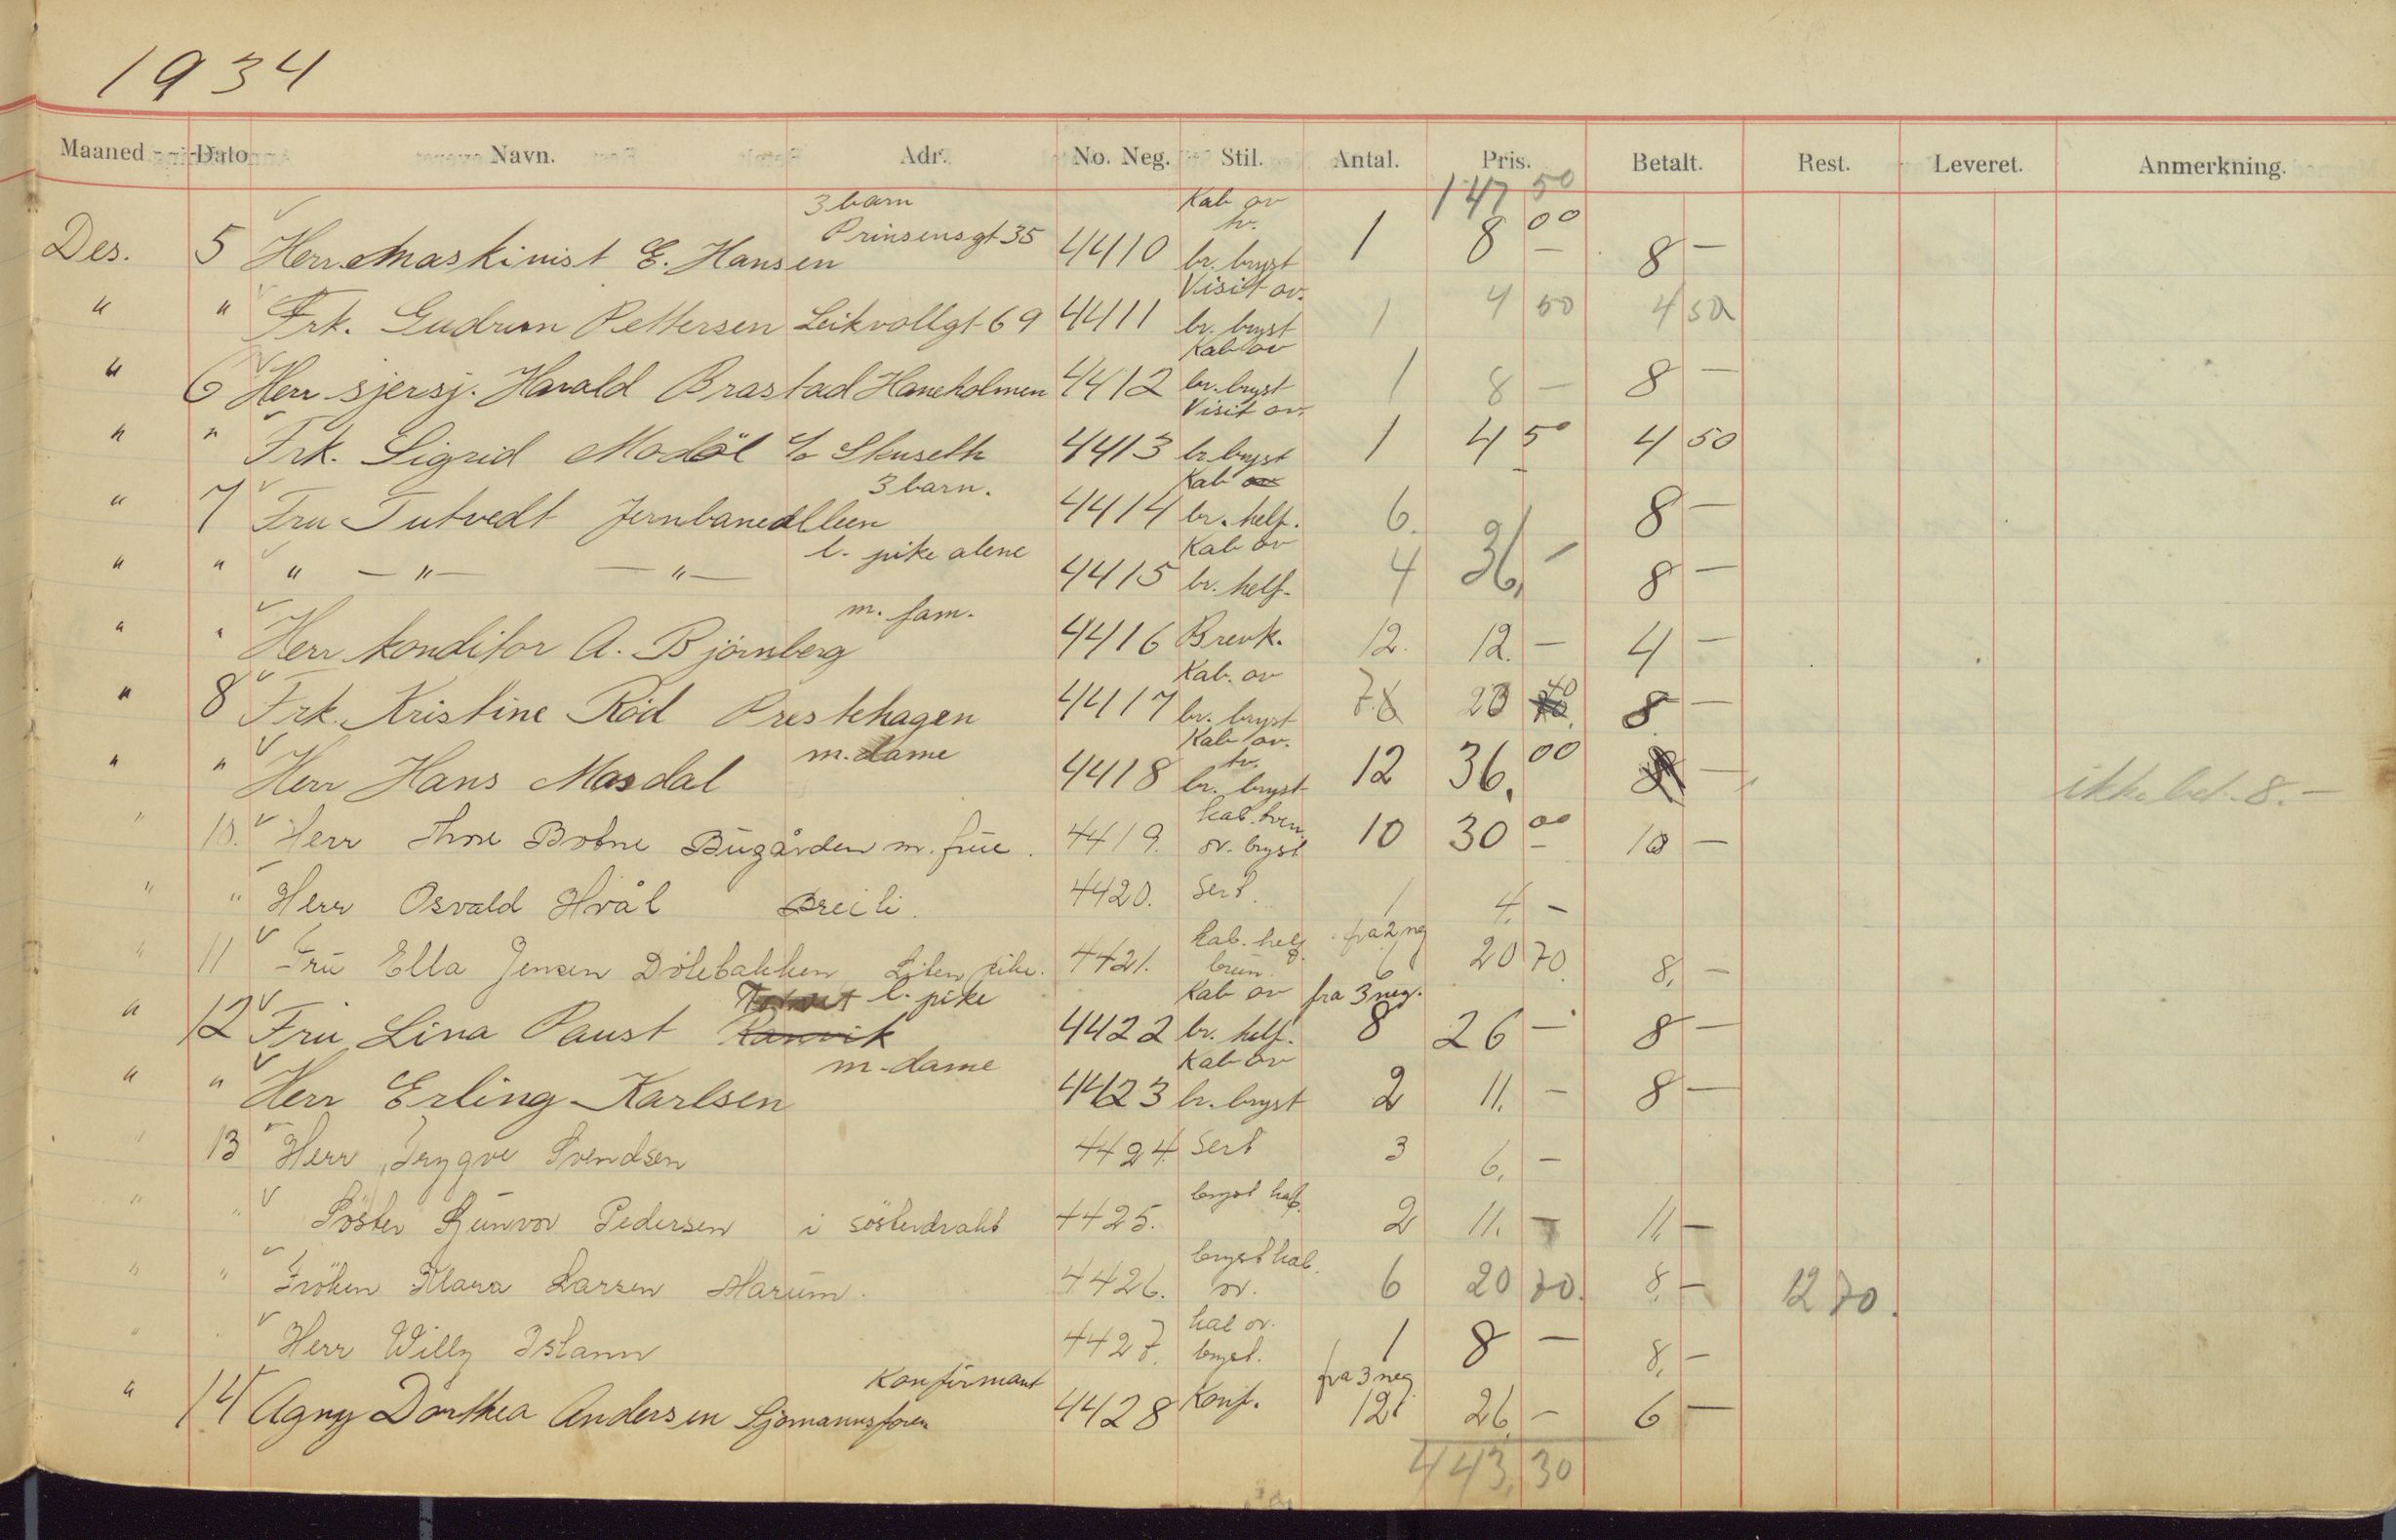 1934
Maaned Dato Navn. Adr. No. Neg. Stil. Antal. Pris. Betalt. Rest. Leveret. Anmerkning.
147 50
3 barn Kab ov
Des. 5 Herr Maskinist E. Hansen Prinsensgt 35 4410 tv. br. bryst 1 8 00 8 —
Visit ov.
" " Frk. Gudrun Pettersen Leikvollgt 69 4411 br. bryst 1 4 50 4 50
Kab ov
" 6 Herr sjersj. Harald Brastad Haneholmen 4412 br. bryst 1 8 — 8 —
Visit ov.
" " Frk. Sigrid Modål c/o Skuseth 4413 br. bryst 1 4 50 4 50
3 barn. Kab ov
" 7 Fru Tutvedt Jernbanealleen 4414 br. helf. 6. 8 —
l. pike alene Kab ov
" " " — " — — " — 4415 br. helf. 4 36, — 8 —
m. fam.
" " Herr konditor A. Björnberg 4416 Brevk. 12. 12. — 4 —
Kab. ov
" 8 Frk. Kristine Röd Prestehagen 4417 br. bryst 7. 8 23 40 8 —
m. dame Kab ov.
" " Herr Hans Masdal 4418 tv. br. bryst 12 36. 00 8 — ikke bet. 8. —
kab. tven.
" 10. Herr Thore Botne Bugården m. frue. 4419. ov. bryst 10 30 00 10 —
" " Herr Osvald Hvål Breili. 4420. Sert. 1 4. —
kab. helf. fra 2 neg
" 11 Fru Ella Jensen Dölebakken Liten pike. 4421. brun. 6 20 70 8. —
l. pike Kab ov fra 3 neg.
" 12 Fru Lina Paust Ranvik 4422 br. helf. 8 26 — 8 —
m. dame Kab ov
" " Herr Erling Karlsen 4423 br. bryst 2 11. — 8 —
" 13 Herr Trygve Svendsen 4424. Sert 3 6. —
bryst kab.
" " Söster Gunvor Pedersen i sösterdrakt 4425. 2 11. — 11. —
bryst kab.
" " Fröken Klara Larsen Marum. 4426. ov. 6 20 70. 8. — 12 70.
kab ov.
" " Herr Willy Islann 4427. bryst. 1 8 — 8. —
Konfirmant fra 3 neg
" 14 Agny Dorthea Andersen Sjömannsforen 4428 Konf. 12 26. — 6 —
443,30